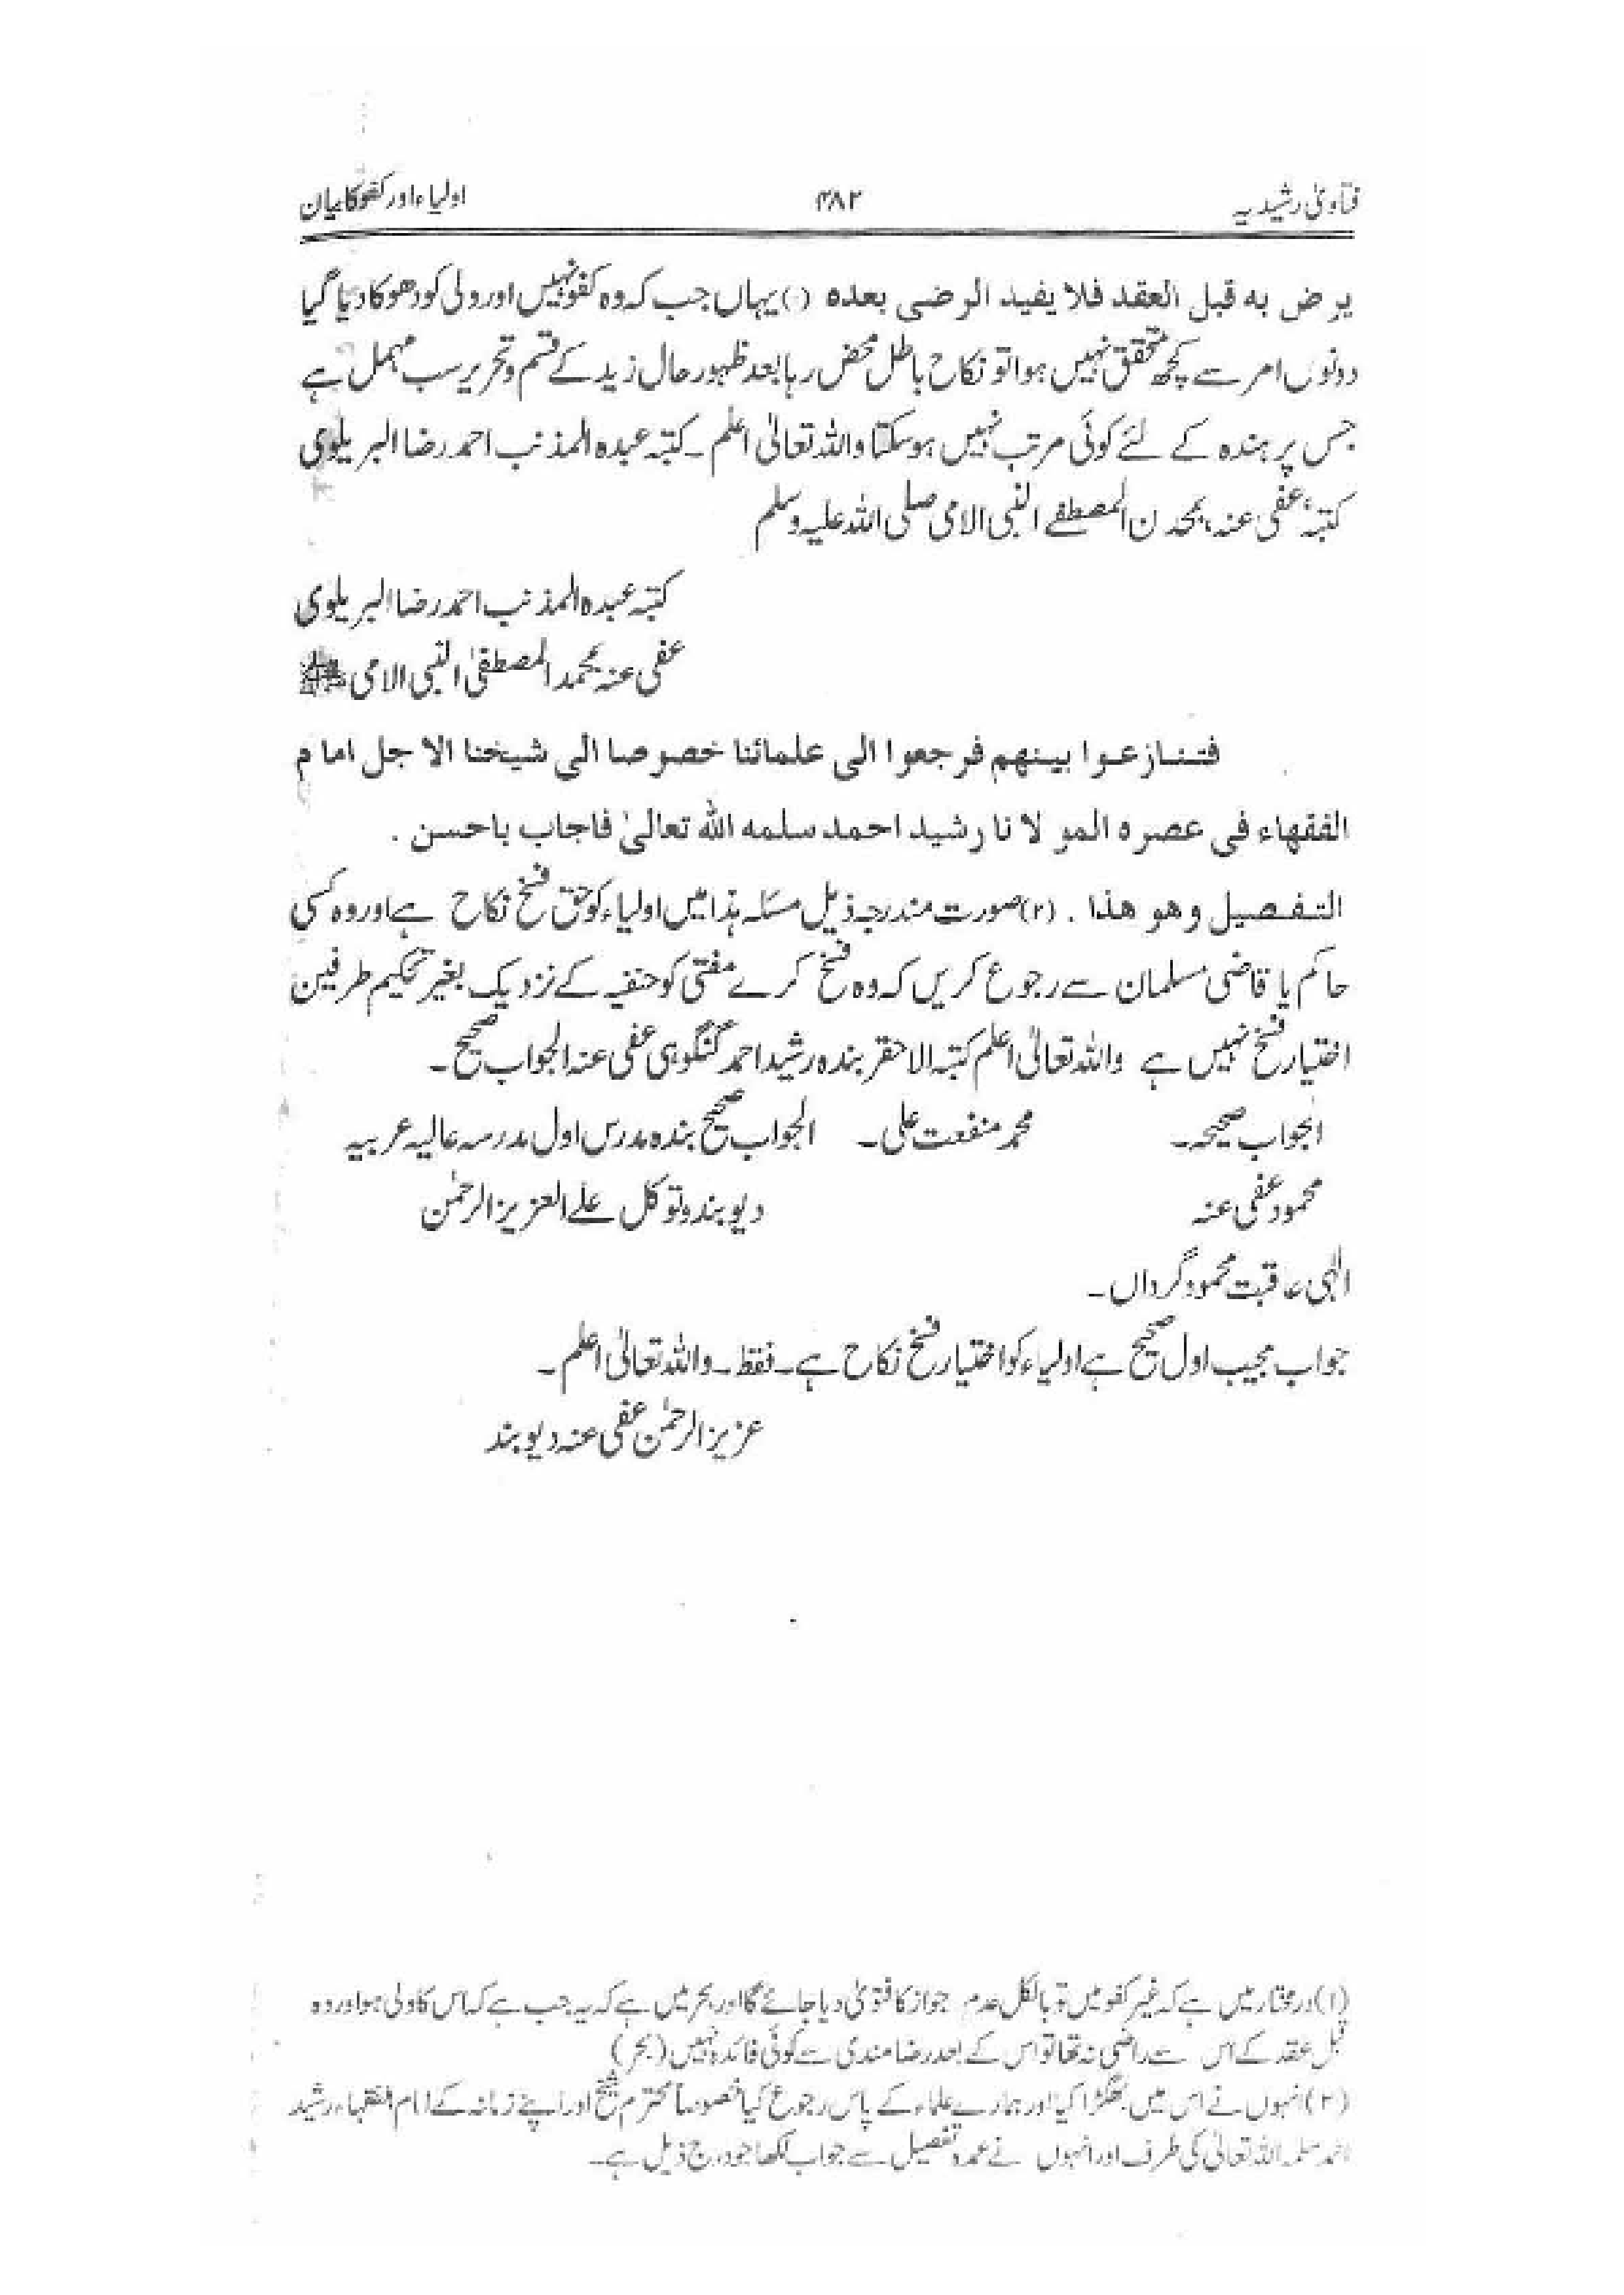 فتاویٰ رشیدیہ ۴۸۲ اولیاء اور کفو کا بیان
یرض بہ قبل العقد فلا یفید الرضی بعدہ (۱) یہاں جب کہ وہ کفو نہیں اور ولی کو دھوکا دیا گیا
دونوں امر سے کچھ متحقق نہیں ہوا تو نکاح باطل محض رہا بعد ظہور حال زید کے قسم و تحریر سب مہمل ہے
جس پر ہندہ کے لئے کوئی مرتب نہیں ہو سکتا واللہ تعالیٰ اعلم ۔ کتبہ عبدہ المذنب احمد رضا البریلوی
کتبہٗ عفی عنہ، بمحمد ن المصطفے النبی الامی صلی اللہ علیہ وسلم
کتبہ عبدہ المذنب احمد رضا البریلوی
عفی عنہ بمحمد المصطفیٰ النبی الامی ﷺ
فتنازعوا بینہم فرجعوا الی علمائنا خصوصا الی شیخنا الا جل امام
الفقہاء فی عصرہ المو لا نا رشید احمد سلمہ اللہ تعالیٰ فاجاب باحسن .
التفصیل وھو ھذا . (۲) صورت مندرجہ ذیل مسئلہ ہذا میں اولیاء کو حق فسخ نکاح ہے اور وہ کسی
حاکم یا قاضی مسلمان سے رجوع کریں کہ وہ فسخ کرے مفتی کو حنفیہ کے نزدیک بغیر تحکیم طرفین
اختیار فسخ نہیں ہے واللہ تعالیٰ اعلم کتبہ الاحقر بندہ رشید احمد گنگوہی عفی عنہ الجواب صحیح ۔
الجواب صحیحہ ۔ محمد منفعت علی ۔ الجواب صحیح بندہ مدرس اول مدرسہ عالیہ عربیہ
محمود عفی عنہ دیوبند وتوکل علے العزیز الرحمٰن
الٰہی عاقبت محمود گرداں ۔
جواب مجیب اول صحیح ہے اولیاء کو اختیار فسخ نکاح ہے ۔ فقط ۔ واللہ تعالیٰ اعلم ۔
عزیز الرحمٰن عفی عنہ دیوبند
(۱) درمختار میں ہے کہ غیر کفو میں تو بالکل عدم جواز کا فتویٰ دیا جائے گا اور بحر میں ہے کہ یہ جب ہے کہ اس کا ولی ہو اور وہ
قبل عقد کے اس سے راضی نہ تھا تو اس کے بعد رضا مندی سے کوئی فائدہ نہیں (بحر)
(۲) انہوں نے اس میں جھگڑا کیا اور ہمارے علماء کے پاس رجوع کیا خصوصاً محترم شیخ اور اپنے زمانہ کے امام الفقہاء رشید
احمد سلمہ اللہ تعالیٰ کی طرف اور انہوں نے عمدہ تفصیل سے جواب لکھا جو درج ذیل ہے ۔